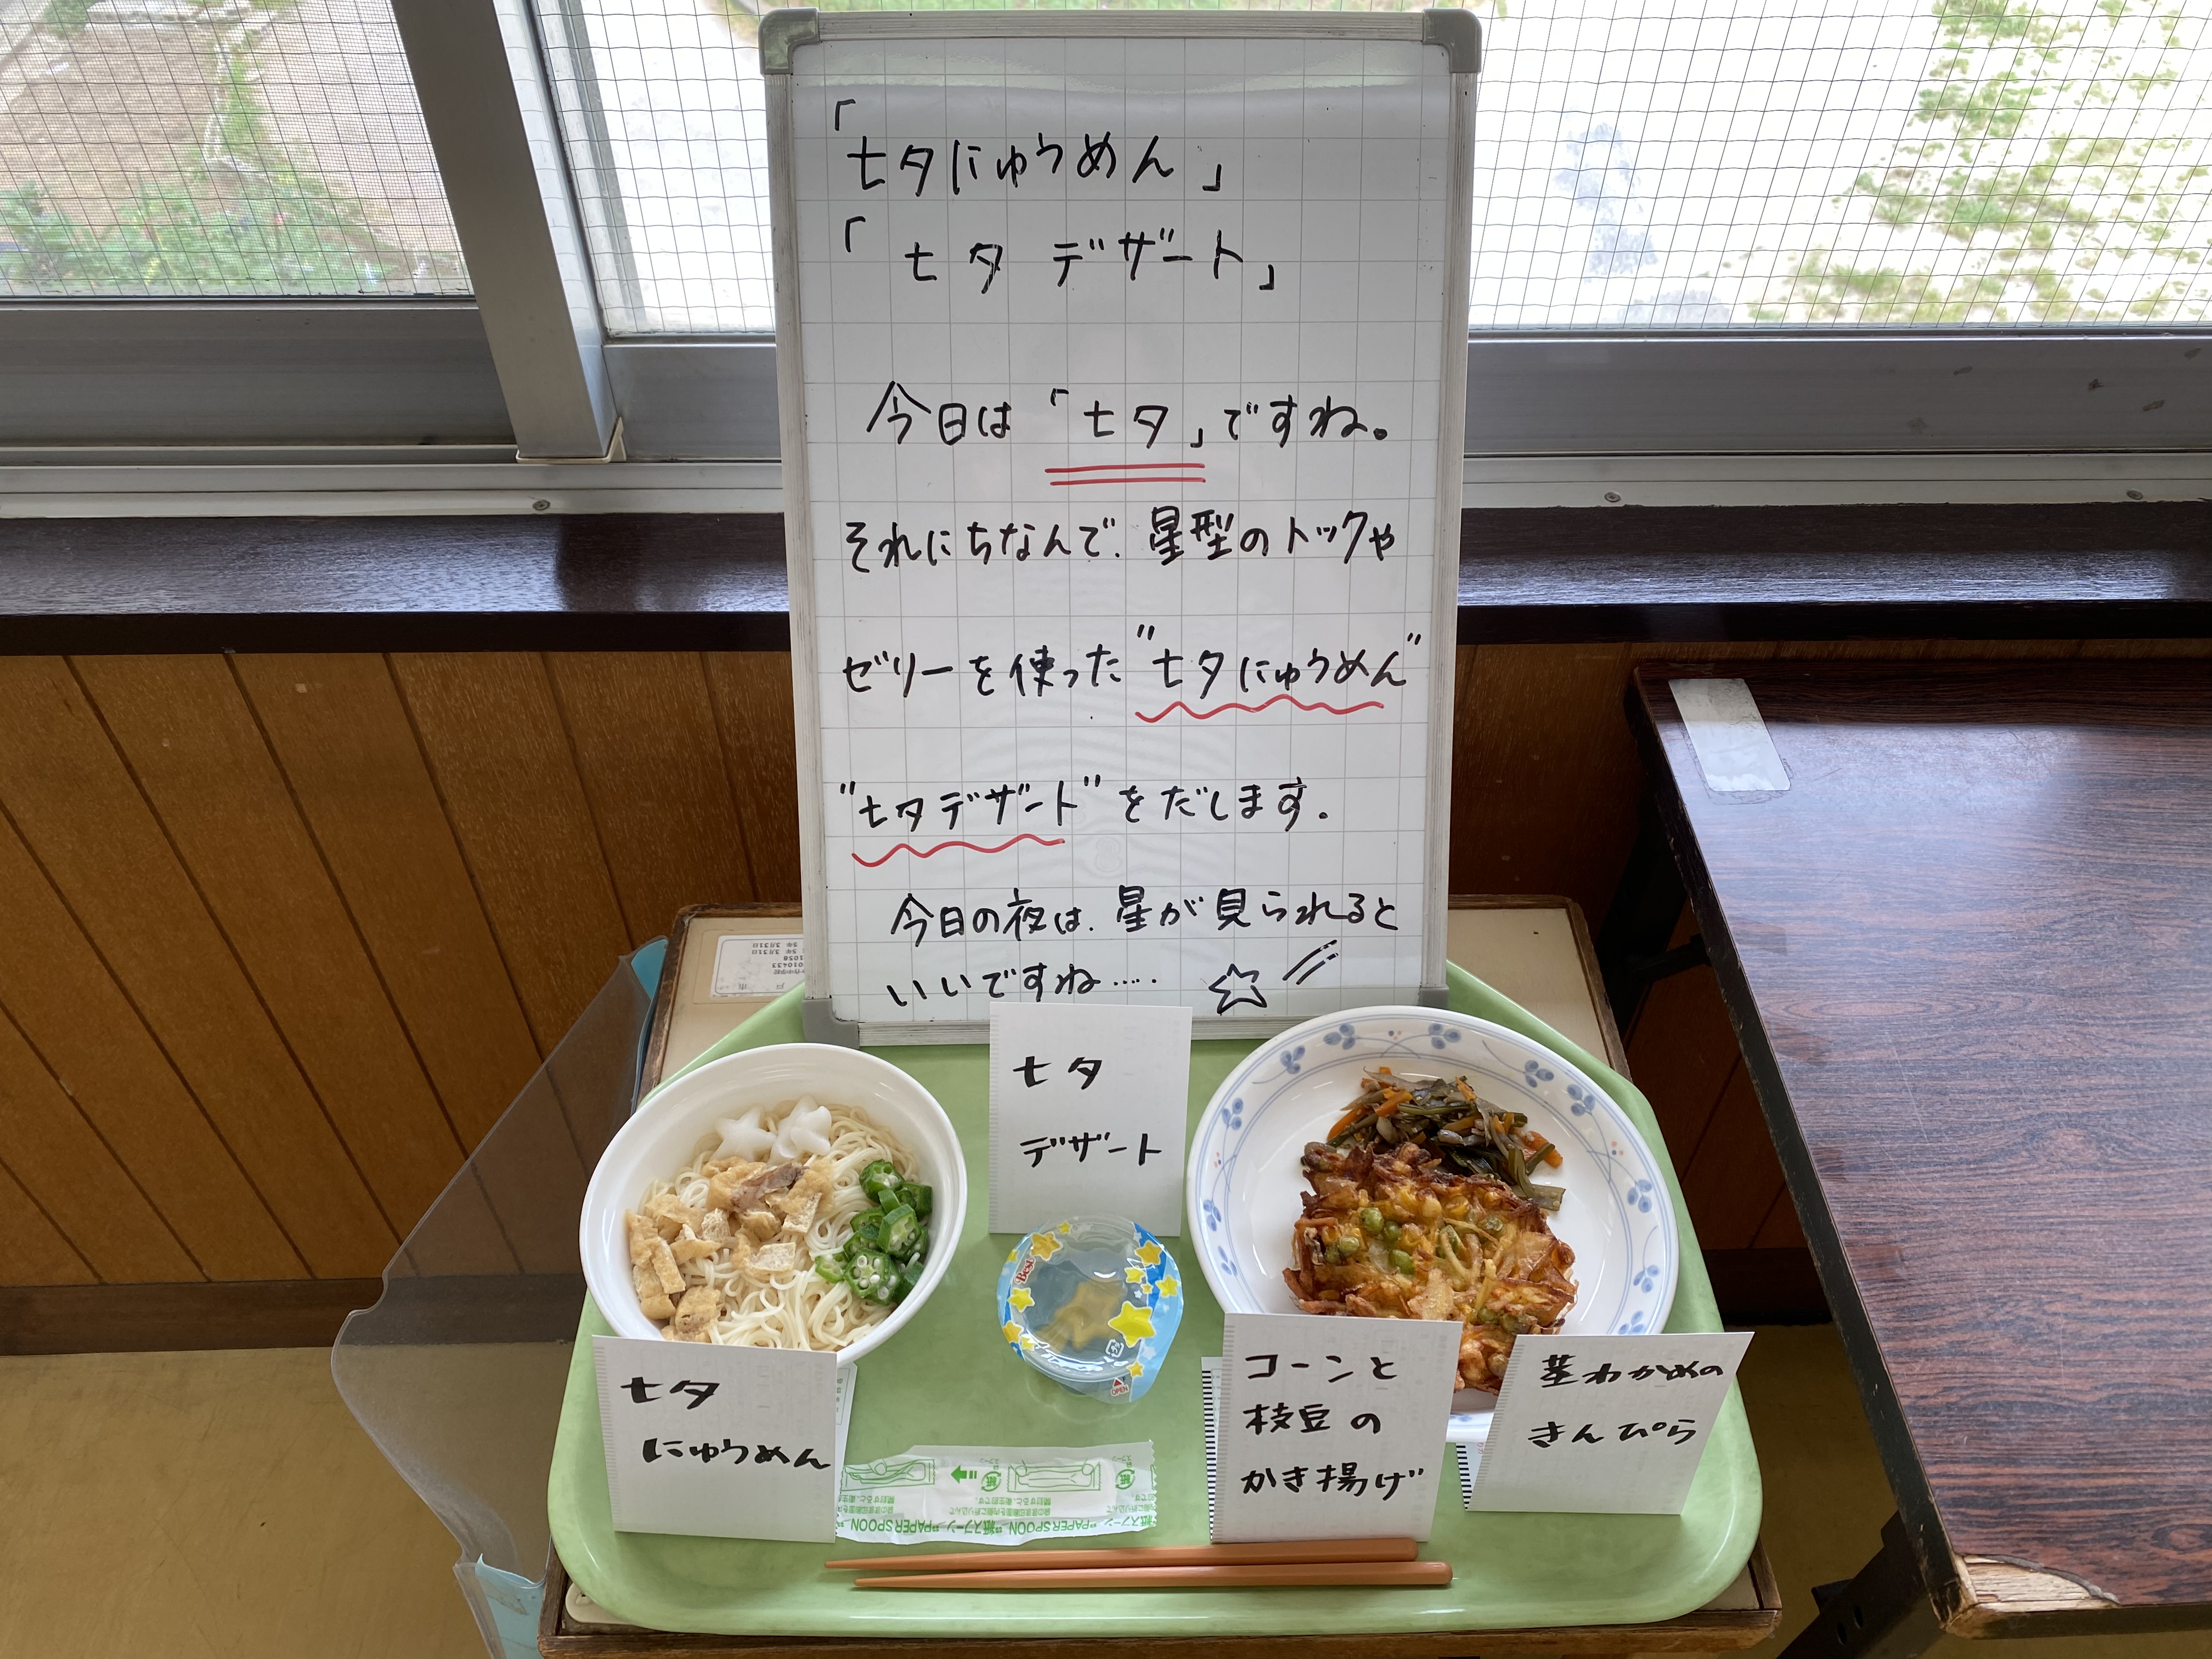 「七夕にゅうめん」
「七夕 デザート」
今日は「七夕」ですね。
それにちなんで、星型のトックや
ゼリーを使った"七夕にゅうめん"
"七夕デザート"をだします。
今日の夜は、星が見られると
いいですね……
七夕
デザート
Best
OPEN
七夕
にゅうめん
コーンと
枝豆の
かき揚げ
茎わかめの
きんぴら
紙スプーン PAPER SPOON 紙スプーン PAPER SPOON